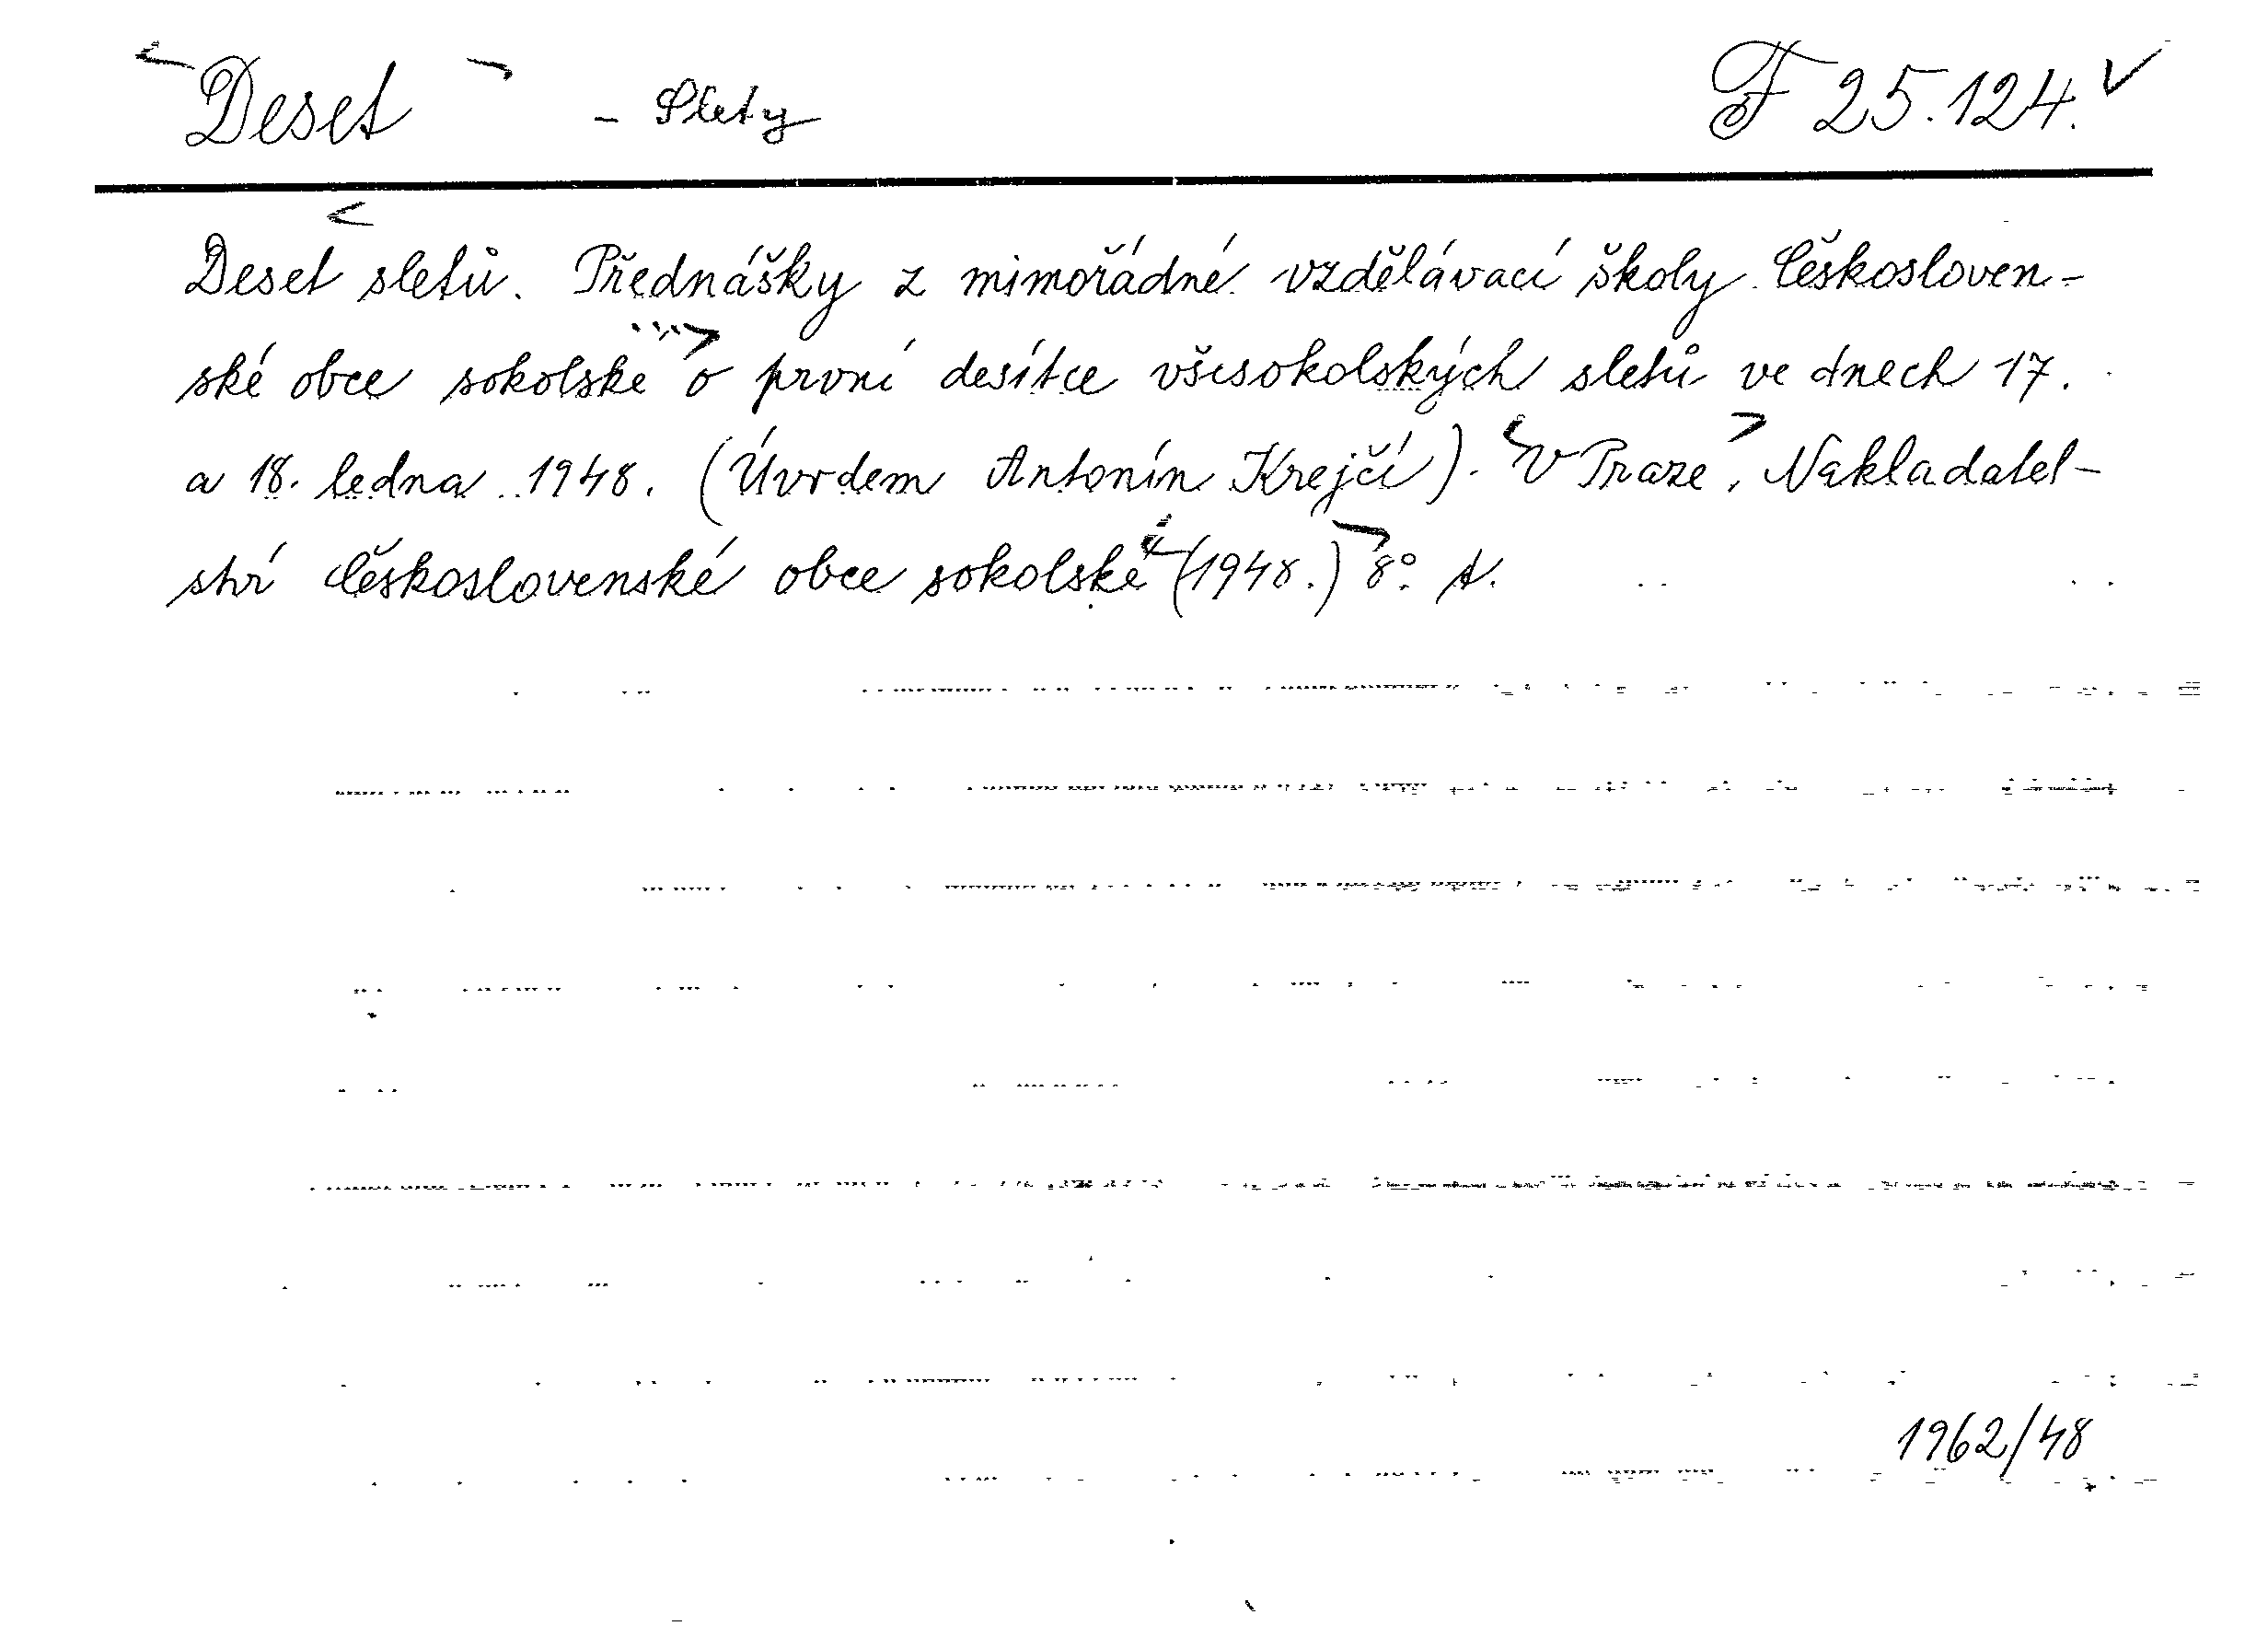 Deset - Slety F 25.124.
Deset sletů. Přednášky z mimořádné vzdělávací školy Českosloven-
ské obce sokolské o první desítce všesokolských sletů ve dnech 17.
a 18. ledna 1948. (Úvodem Antonín Krejčí). V Praze, Nakladatel-
ství Československé obce sokolské (1948.) 8°.
1962/48